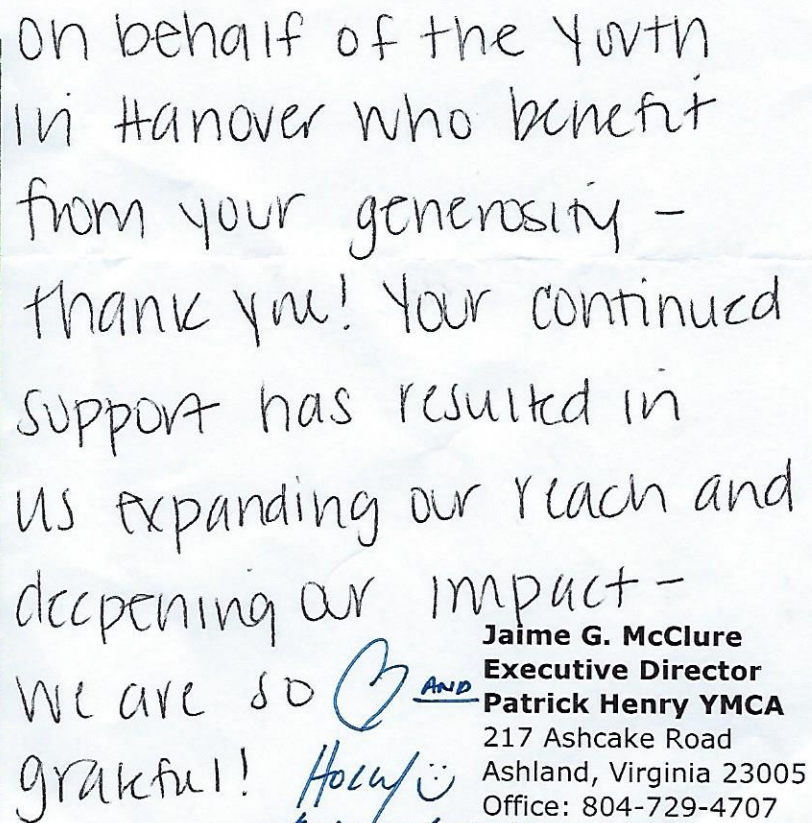 on behalf of the Youth
in Hanover who benefit
from your generosity -
thank you! Your continued
support has resulted in
us expanding our reach and
deepening our impact -
we are so
grateful!
AND
Holly
Jaime G. McClure
Executive Director
Patrick Henry YMCA
217 Ashcake Road
Ashland, Virginia 23005
Office: 804-729-4707